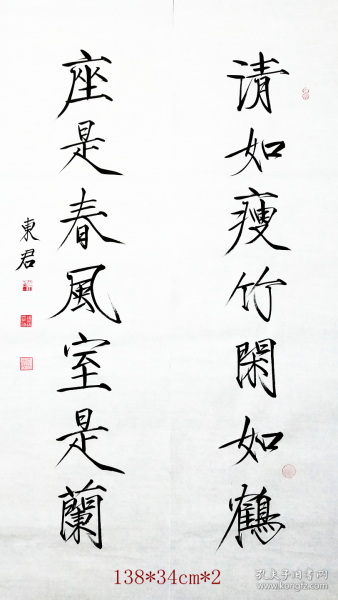 请如瘦竹閑如鶴
座是春風室是蘭
東君
138*34cm*2
孔夫子旧书网